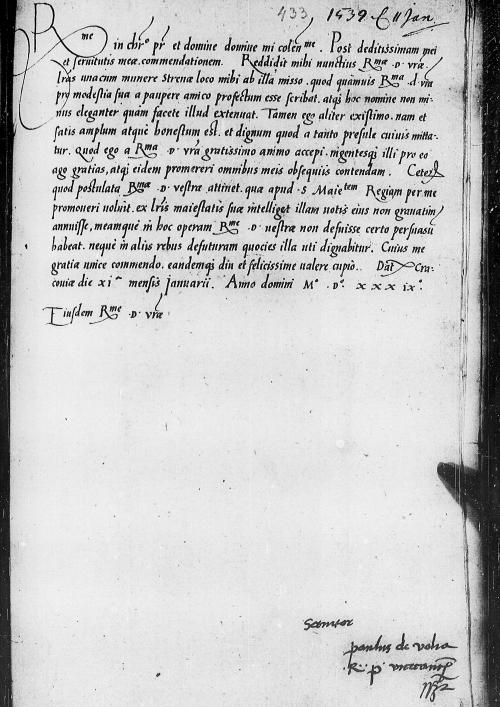 433 1539 C 11 Jan
R me in chr̃o pr̃ et domine domine mi colen me. Post deditissimam mei
et seruitutis meæ. commendationem. Reddidit mihi nunctius Rmæ .D. vræ
lr̃as unacum munere Strenæ loco mihi ab illa misso. quod quamuis Rma .d. vr̃a
pro modestia sua a paupere amico profectum esse scribat. atq; hoc nomine non mi-
nus eleganter quam facete illud extenuat. Tamen ego aliter existimo. nam et
satis amplum atque honestum est. et dignum quod a tanto presule cuiuis mitta-
tur. Quod ego a Rma .D. vr̃a gratissimo animo accepi. ingentesq; illi pro eo
ago gratias, atq; eidem promereri omnibus meis obsequiis contendam. Ceterũ
quod postulata Rmæ .D. vestræ attinet. qua apud .S. Maietem Regiam per me
promoueri uoluit. ex lr̃is maiestatis suæ intelliget illam uotis eius non grauatim
annuisse, meamque in hoc operam Rme .D. uestræ non defuisse certo persuasũ
habeat. neque in aliis rebus defuturam quocies illa uti dignabitur. Cuius me
gratiæ unice commendo. eandemq; diu et felicissime ualere cupio. Dat̃ Cra-
couiæ die xi a mensis Januarii. Anno domini Mº. Dº. xxxixº.
Eiusdem Rme .D. vræ
Seruitor
paulus de volia
R. p.